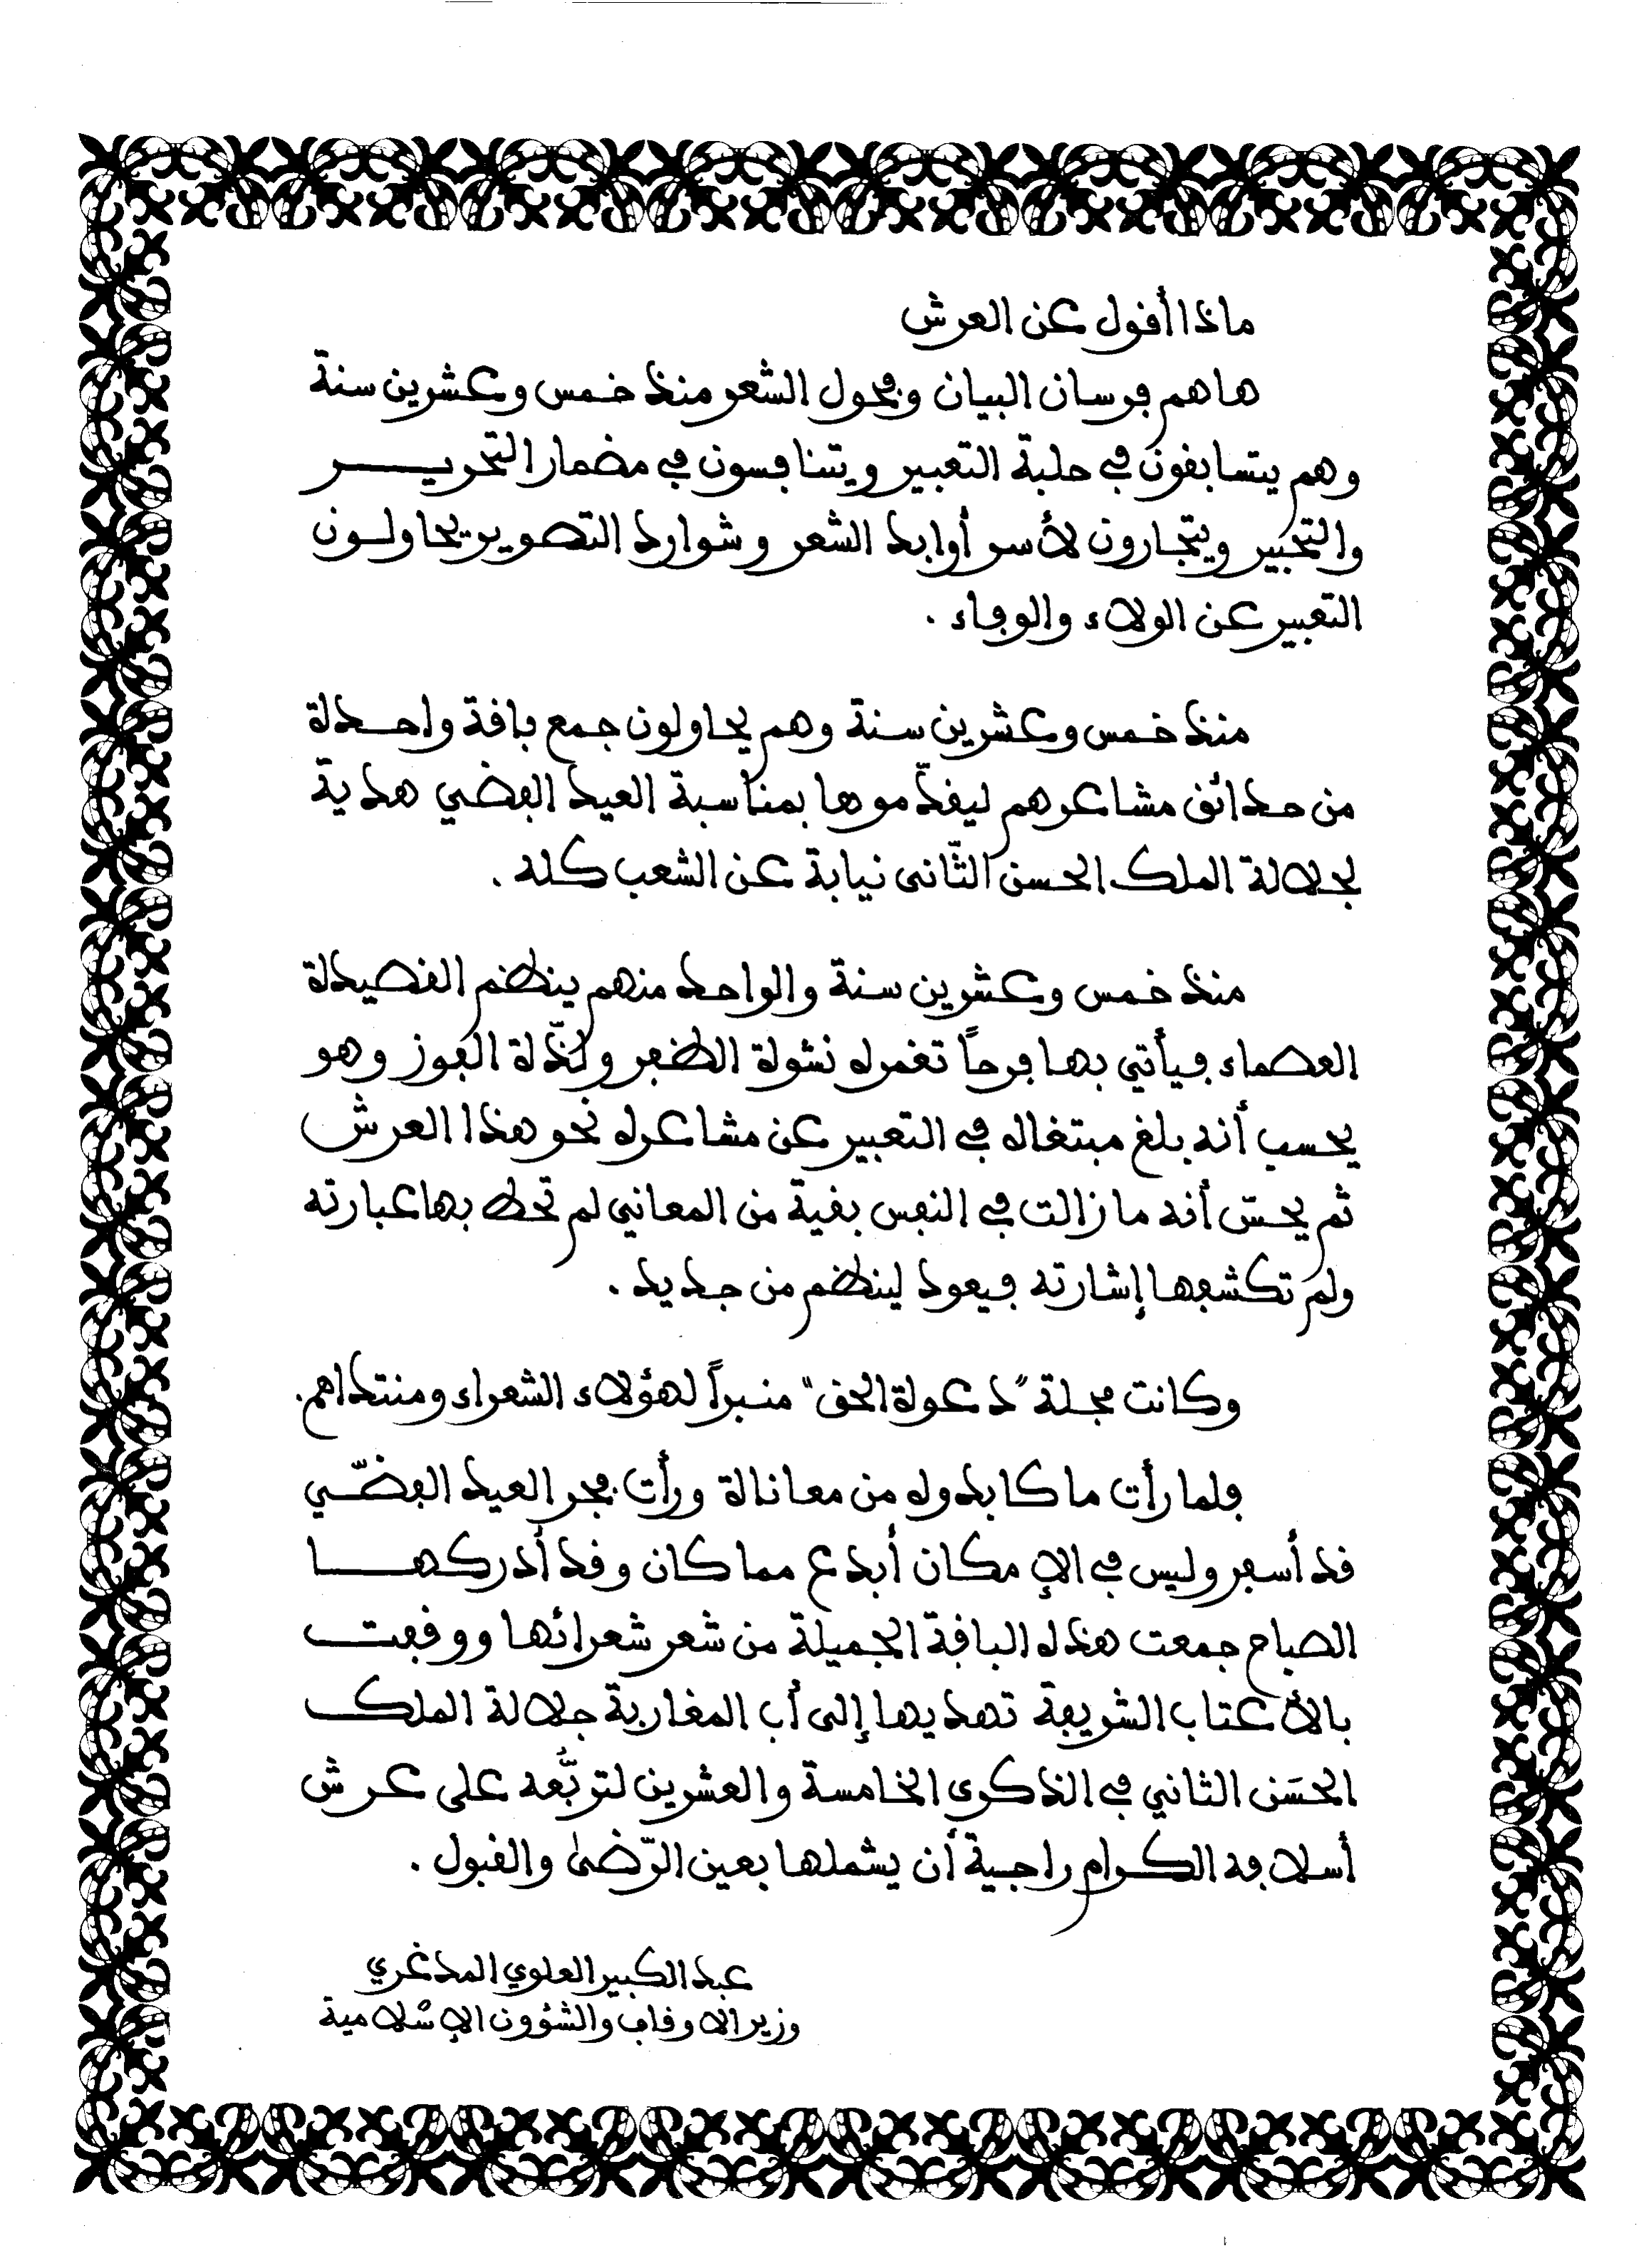 ماذا أقول عن العرش
ها هم فرسان البيان وفحول الشعر منذ خمس وعشرين سنة
وهم يتسابقون في حلبة التعبير ويتنافسون في مضمار التحرير
والتحبير ويتجارون لأسر أوابد الشعر وشوارد التصوير يحاولون
التعبير عن الولاء والوفاء .
منذ خمس وعشرين سنة وهم يحاولون جمع باقة واحدة
من حدائق مشاعرهم ليقدّموها بمناسبة العيد الفضي هدية
لجلالة الملك الحسن الثّاني نيابة عن الشعب كله .
منذ خمس وعشرين سنة والواحد منهم ينظم القصيدة
العصماء فيأتي بها فرحاً تغمره نشوة الظفر ولذّة الفوز وهو
يحسب أنه بلغ مبتغاه في التعبير عن مشاعره نحو هذا العرش
ثم يحسّ أنه ما زالت في النفس بقية من المعاني لم تحط بها عبارته
ولم تكشفها إشارته فيعود لينظم من جديد .
وكانت مجلة "دعوة الحق" منبراً لهؤلاء الشعراء ومنتداهم.
فلما رأت ما كابدوه من معاناة ورأت فجر العيد الفضّي
قد أسفر وليس في الإمكان أبدع مما كان وقد أدركها
الصباح جمعت هذه الباقة الجميلة من شعر شعرائها ووقفت
بالأعتاب الشريفة تهديها إلى أب المغاربة جلالة الملك
الحسَن الثاني في الذكرى الخامسة والعشرين لتربُّعه على عرش
أسلافه الكرام راجية أن يشملها بعين الرّضى والقبول .
عبد الكبير العلوي المدغري
وزير الاوقاف والشؤون الإسْلامية